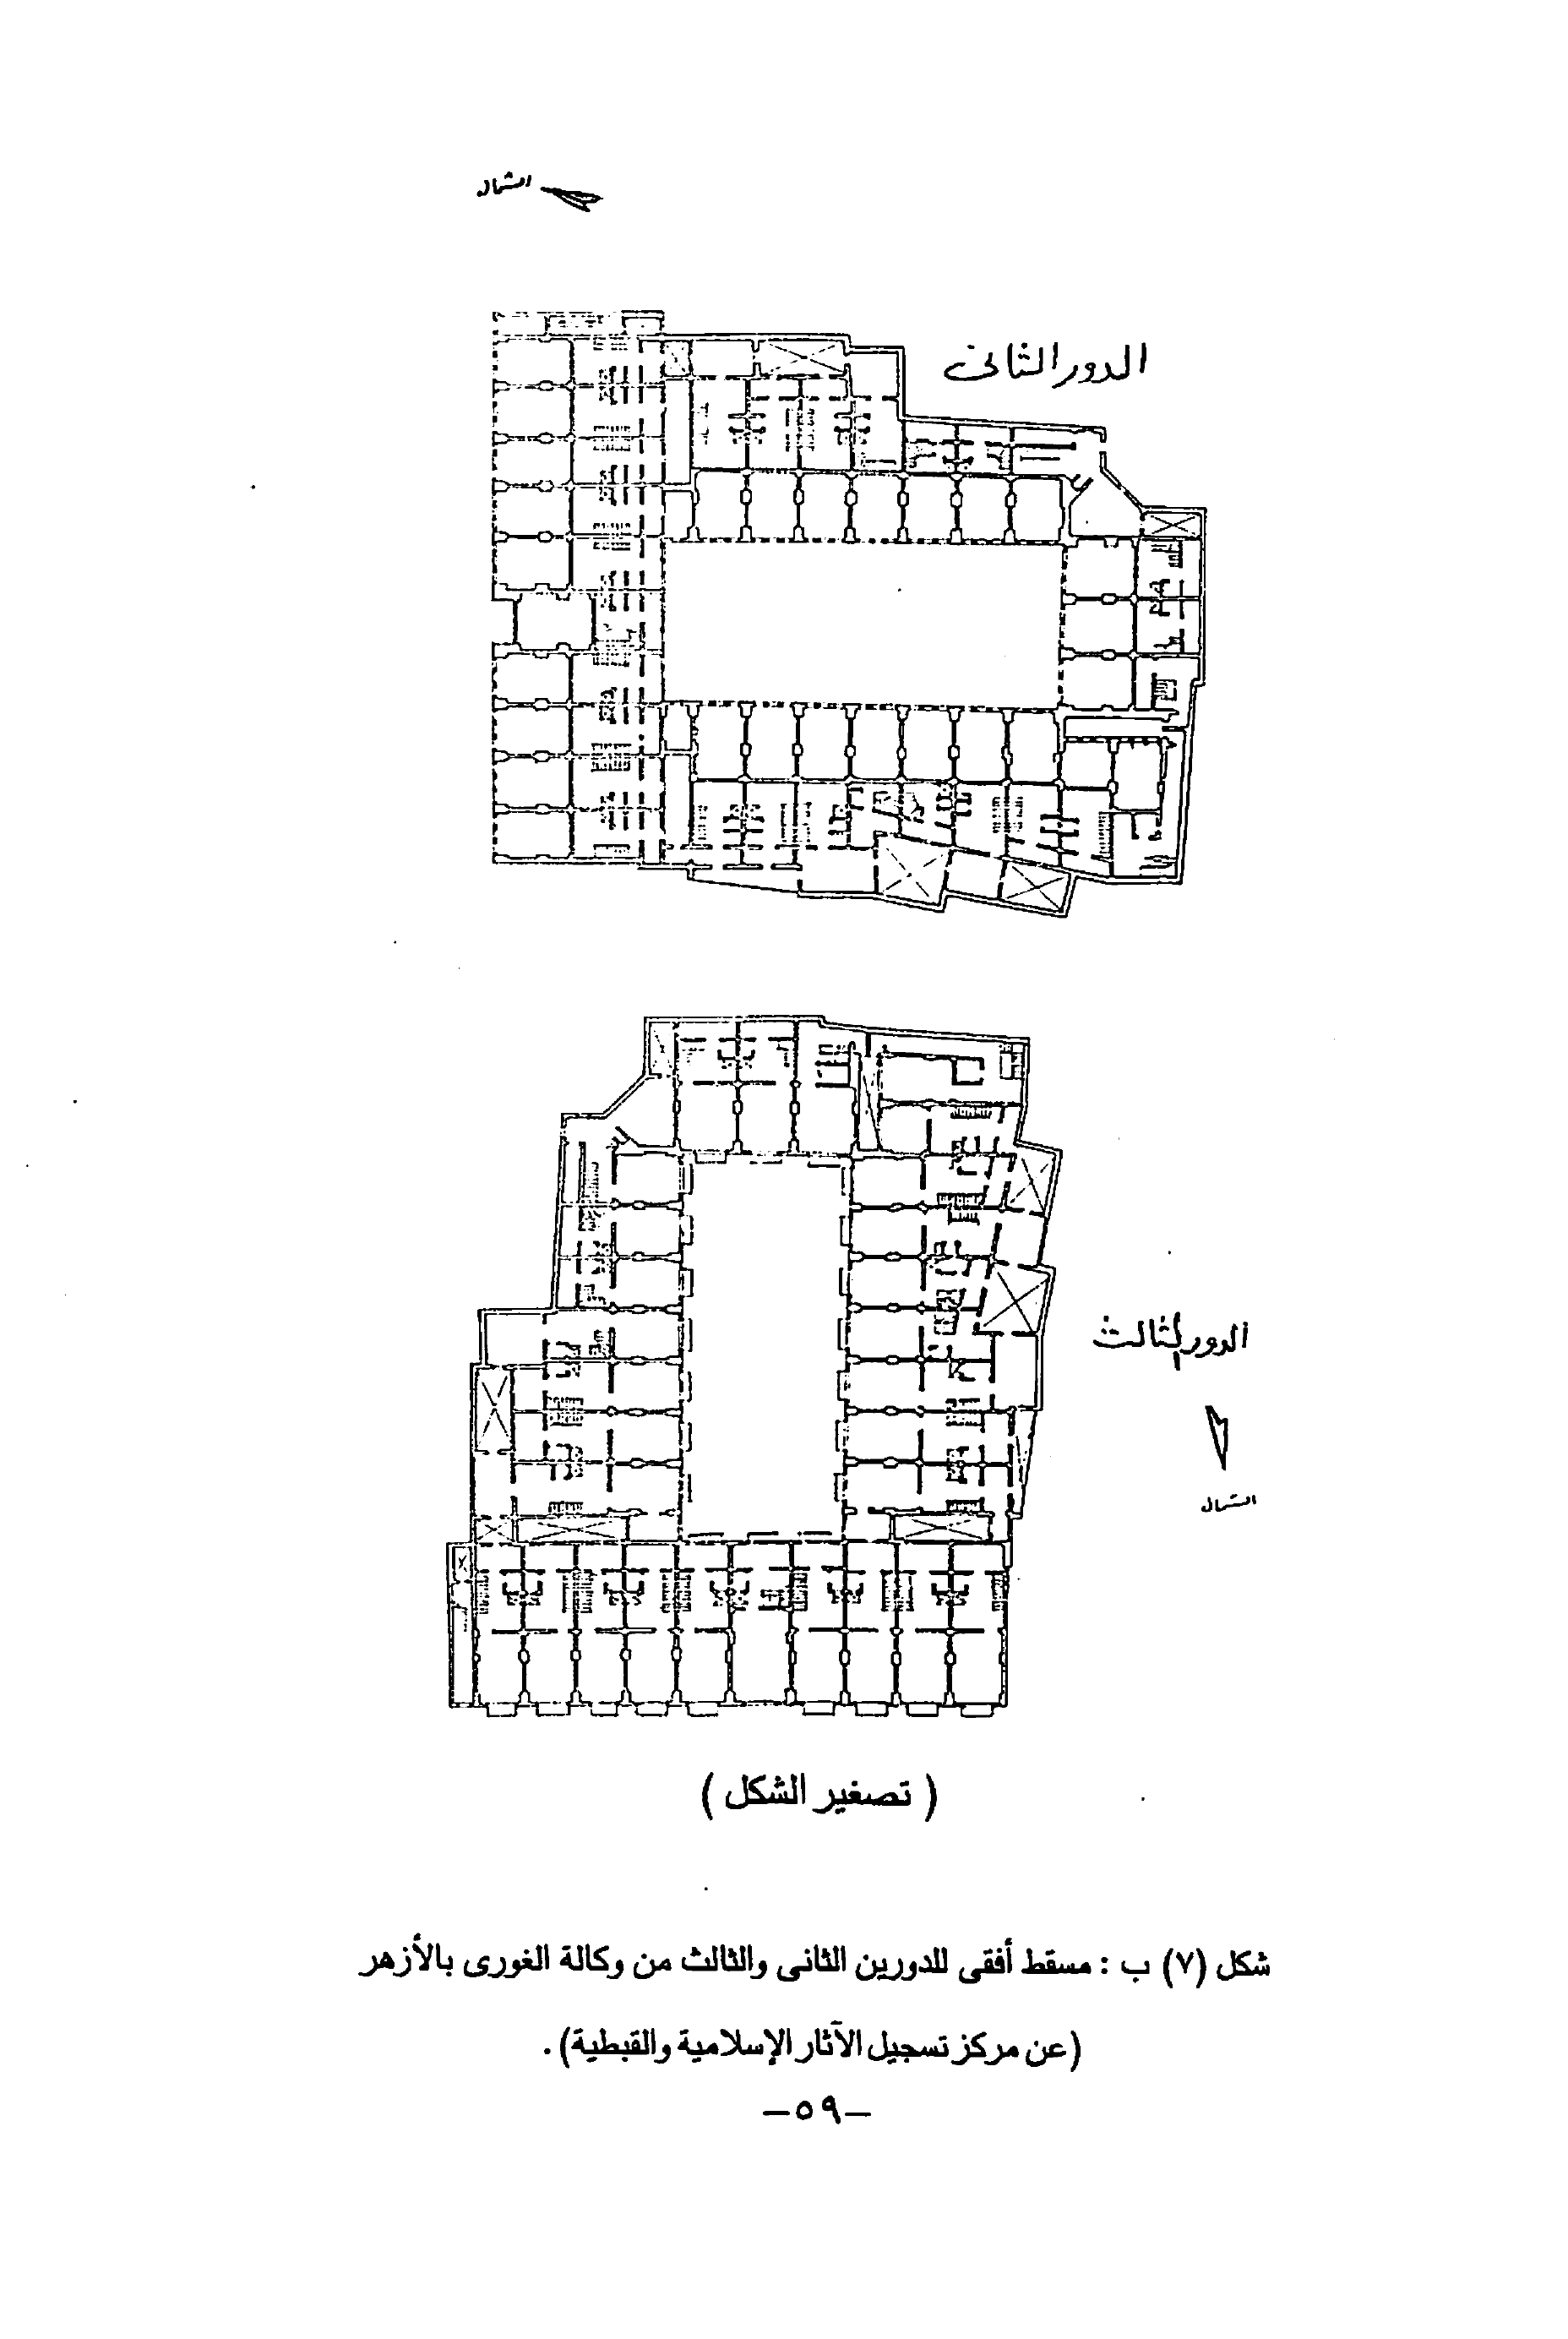 الشمال
الدور الثانى
الدور الثالث
الشمال
( تصغير الشكل )
شكل (٧) ب : مسقط أفقى للدورين الثانى والثالث من وكالة الغورى بالأزهر
(عن مركز تسجيل الآثار الإسلامية والقبطية) .
–٥٩–